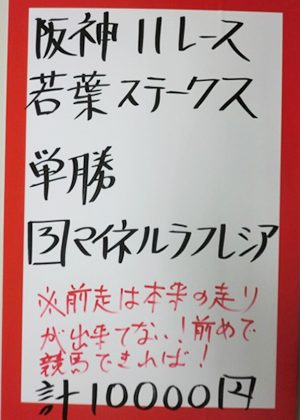 阪神11レース
若葉ステークス
単勝
3マイネルラフレシア
※前走は本来の走り
が出来てない！前めで
競馬できれば！
計10000円